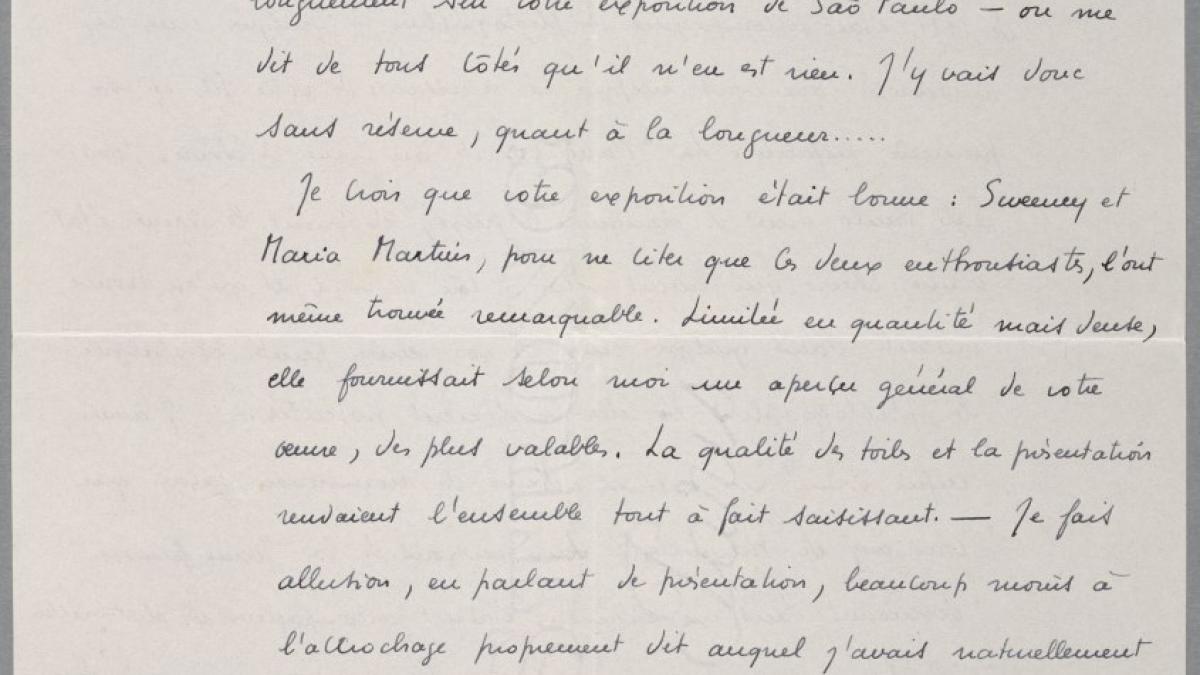 longuement sur votre exposition de São Paulo — on me
dit de tous côtés qu'il n'en est rien. J'y vais donc
sans réserve, quant à la longueur.....
Je crois que votre exposition était bonne : Sweeney et
Maria Martins, pour ne citer que ces deux enthousiastes, l'ont
même trouvée remarquable. Limitée en quantité mais dense,
elle fournissait selon moi un aperçu général de votre
œuvre, des plus valables. La qualité des toiles et la présentation
rendaient l'ensemble tout à fait saisissant. — Je fais
allusion, en parlant de présentation, beaucoup moins à
l'accrochage proprement dit auquel j'avais naturellement